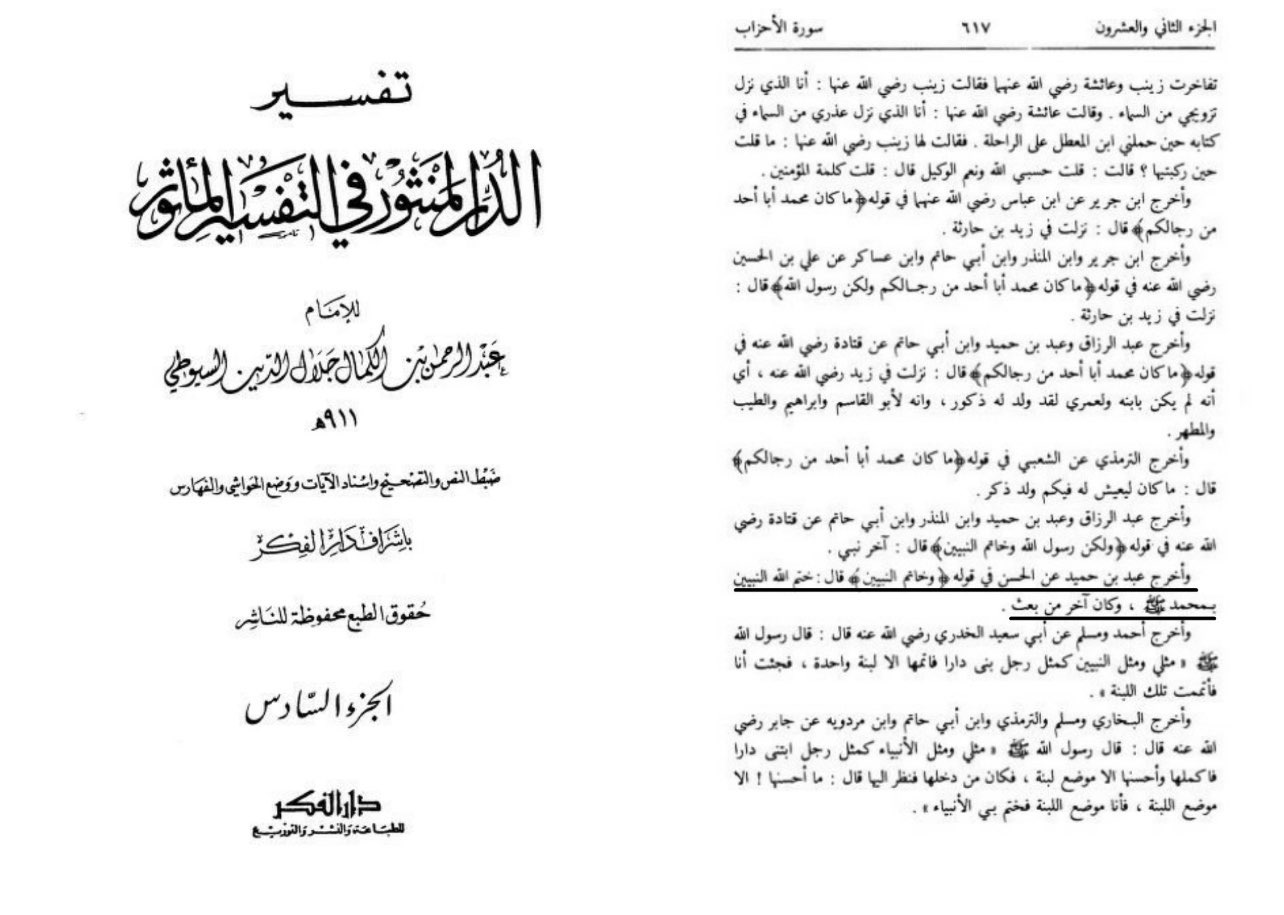 تفسير
الدر المنثور في التفسير المأثور
للإمام
عبد الرحمن بن الكمال جلال الدين السيوطي
٩١١هـ
ضبط النص والتصحيح واسناد الآيات ووضع الحواشي والفهارس
بإشراف دار الفكر
حقوق الطبع محفوظة للناشر
الجزء السادس
دار الفكر
للطباعة والنشر والتوزيع
الجزء الثاني والعشرون ٦١٧ سورة الأحزاب
تفاخرت زينب وعائشة رضي الله عنهما فقالت زينب رضي الله عنها : أنا الذي نزل
تزويجي من السماء . وقالت عائشة رضي الله عنها : أنا الذي نزل عذري من السماء في
كتابه حين حملني ابن المعطل على الراحلة . فقالت لها زينب رضي الله عنها : ما قلت
حين ركبتيها ؟ قالت : قلت حسبي الله ونعم الوكيل قال : قلت كلمة المؤمنين .
وأخرج ابن جرير عن ابن عباس رضي الله عنهما في قوله ﴿ما كان محمد أبا أحد
من رجالكم﴾ قال : نزلت في زيد بن حارثة .
وأخرج ابن جرير وابن المنذر وابن أبي حاتم وابن عساكر عن علي بن الحسين
رضي الله عنه في قوله ﴿ما كان محمد أبا أحد من رجالكم ولكن رسول الله﴾ قال :
نزلت في زيد بن حارثة .
وأخرج عبد الرزاق وعبد بن حميد وابن أبي حاتم عن قتادة رضي الله عنه في
قوله ﴿ما كان محمد أبا أحد من رجالكم﴾ قال : نزلت في زيد رضي الله عنه ، أي
أنه لم يكن بابنه ولعمري لقد ولد له ذكور ، وانه لأبو القاسم وابراهيم والطيب
والمطهر .
وأخرج الترمذي عن الشعبي في قوله ﴿ما كان محمد أبا أحد من رجالكم﴾
قال : ما كان ليعيش له فيكم ولد ذكر .
وأخرج عبد الرزاق وعبد بن حميد وابن المنذر وابن أبي حاتم عن قتادة رضي
الله عنه في قوله ﴿ولكن رسول الله وخاتم النبيين﴾ قال : آخر نبي .
وأخرج عبد بن حميد عن الحسن في قوله ﴿وخاتم النبيين﴾ قال : ختم الله النبيين
بمحمد ﷺ ، وكان آخر من بعث .
وأخرج أحمد ومسلم عن أبي سعيد الخدري رضي الله عنه قال : قال رسول الله
ﷺ « مثلي ومثل النبيين كمثل رجل بنى دارا فاتمها الا لبنة واحدة ، فجئت أنا
فأتممت تلك اللبنة » .
وأخرج البخاري ومسلم والترمذي وابن أبي حاتم وابن مردويه عن جابر رضي
الله عنه قال : قال رسول الله ﷺ « مثلي ومثل الأنبياء كمثل رجل ابتنى دارا
فاكملها وأحسنها الا موضع لبنة ، فكان من دخلها فنظر اليها قال : ما أحسنها ! الا
موضع اللبنة ، فأنا موضع اللبنة فختم بي الأنبياء » .